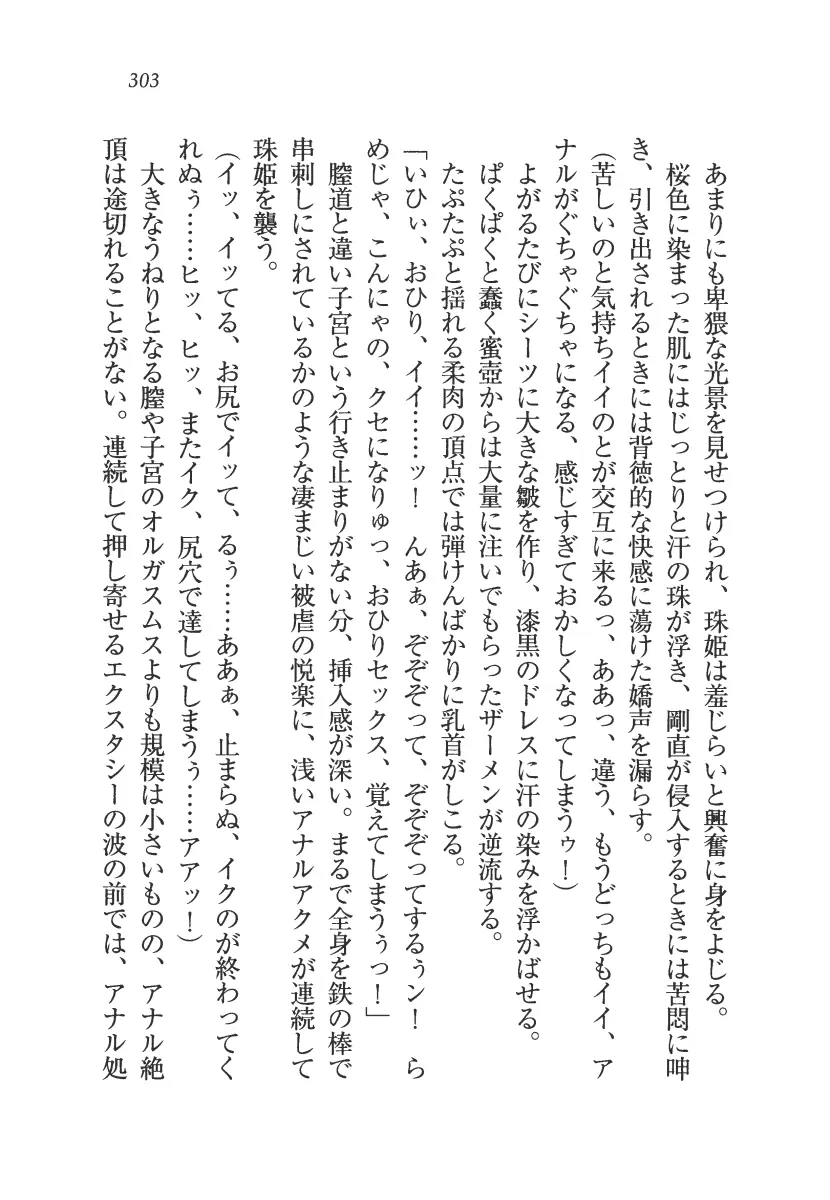 303
あまりにも卑猥な光景を見せつけられ、珠姫は羞じらいと興奮に身をよじる。
桜色に染まった肌にはじっとりと汗の珠が浮き、剛直が侵入するときには苦悶に呻
き、引き出されるときには背徳的な快感に蕩けた嬌声を漏らす。
(苦しいのと気持ちイイのとが交互に来るっ、ああっ、違う、もうどっちもイイ、ア
ナルがぐちゃぐちゃになる、感じすぎておかしくなってしまうゥ!)
よがるたびにシーツに大きな皺を作り、漆黒のドレスに汗の染みを浮かばせる。
ぱくぱくと蠢く蜜壺からは大量に注いでもらったザーメンが逆流する。
たぷたぷと揺れる柔肉の頂点では弾けんばかりに乳首がしこる。
「いひぃ、おひり、イイ……ッ! んあぁ、ぞぞぞって、ぞぞぞってするぅン! ら
めじゃ、こんにゃの、クセになりゅっ、おひりセックス、覚えてしまうぅっ!」
膣道と違い子宮という行き止まりがない分、挿入感が深い。まるで全身を鉄の棒で
串刺しにされているかのような凄まじい被虐の悦楽に、浅いアナルアクメが連続して
珠姫を襲う。
(イッ、イッてる、お尻でイッて、るぅ……ああぁ、止まらぬ、イクのが終わってく
れぬぅ……ヒッ、ヒッ、またイク、尻穴で達してしまうぅ……アアッ!)
大きなうねりとなる膣や子宮のオルガスムスよりも規模は小さいものの、アナル絶
頂は途切れることがない。連続して押し寄せるエクスタシーの波の前では、アナル処